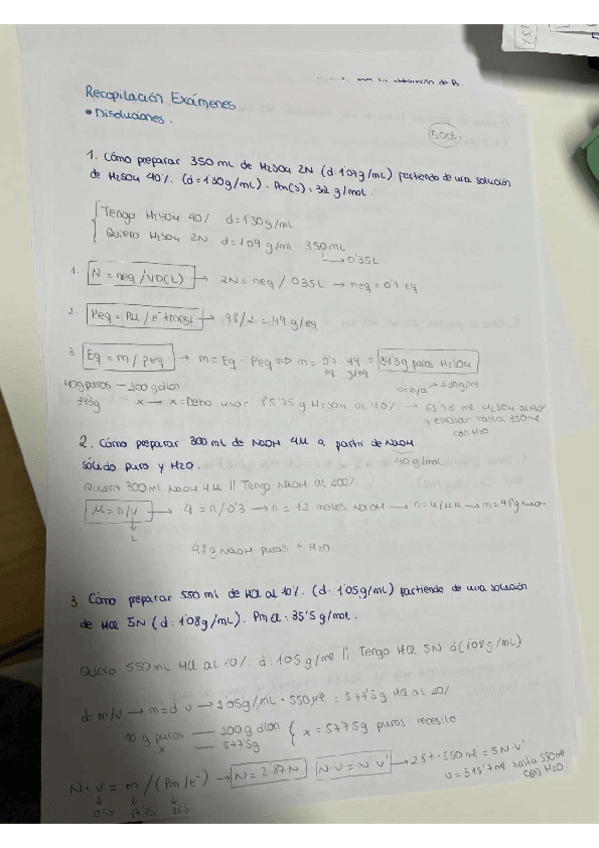 Recopilación Exámenes
• Disoluciones.
1. Cómo preparar 350 mL de H2SO4 2N (d: 1'09 g/mL) partiendo de una solución
de H2SO4 40%. (d=1'30g/mL). Pm(S)=32 g/mol.
Tengo H2SO4 40% d=1'30g/mL
Quiero H2SO4 2N d=1'09 g/mL 350mL
→ 0'35L
1. N = neq / VD(L) → 2N = neq / 0'35L → neq = 0'7 eq
2. Peq = PM / → 98/2 = 49 g/eq
3. Eq = m / peq → m = Eq · Peq => m = 0'7 · 49 = 34'3g puros H2SO4
40g puros — 100 g dlon
34'3g x → x = Debo usar 85'75 g H2SO4 al 40% → ml H2SO4 al 40%
y enrasar hasta 350ml
con H2O
2. Cómo preparar 300 mL de NaOH 4M a partir de NaOH
sólido puro y H2O.
40 g/mol
Quiero 300 mL NaOH 4M || Tengo NaOH al 100%
M = n/V → 4 = n/0'3 → n = 1'2 moles NaOH → n = → m = 48g
L
48 g NaOH puros + H2O
3. Cómo preparar 550 ml de HCl al 10%. (d: 1'05g/mL) partiendo de una solución
de HCl 5N (d: 1'08g/mL). Pm Cl = 35'5 g/mol.
Quiero 550 mL HCl al 10%. d: 1'05 g/ml || Tengo HCl 5N d(1'08 g/mL)
d = m/v → m = d · v → 1'05g/mL · 550 ml = 577'5g HCl al 10%
10 g puros — 100 g dlon { x = 57'75g puros necesito
x — 577'5g
N · V = m / (Pm / e-) → N = 2'87N N · V = N' V' → 2'87 · 550 ml = 5N · V'
V = 315'7 ml hasta 550ml
con H2O.